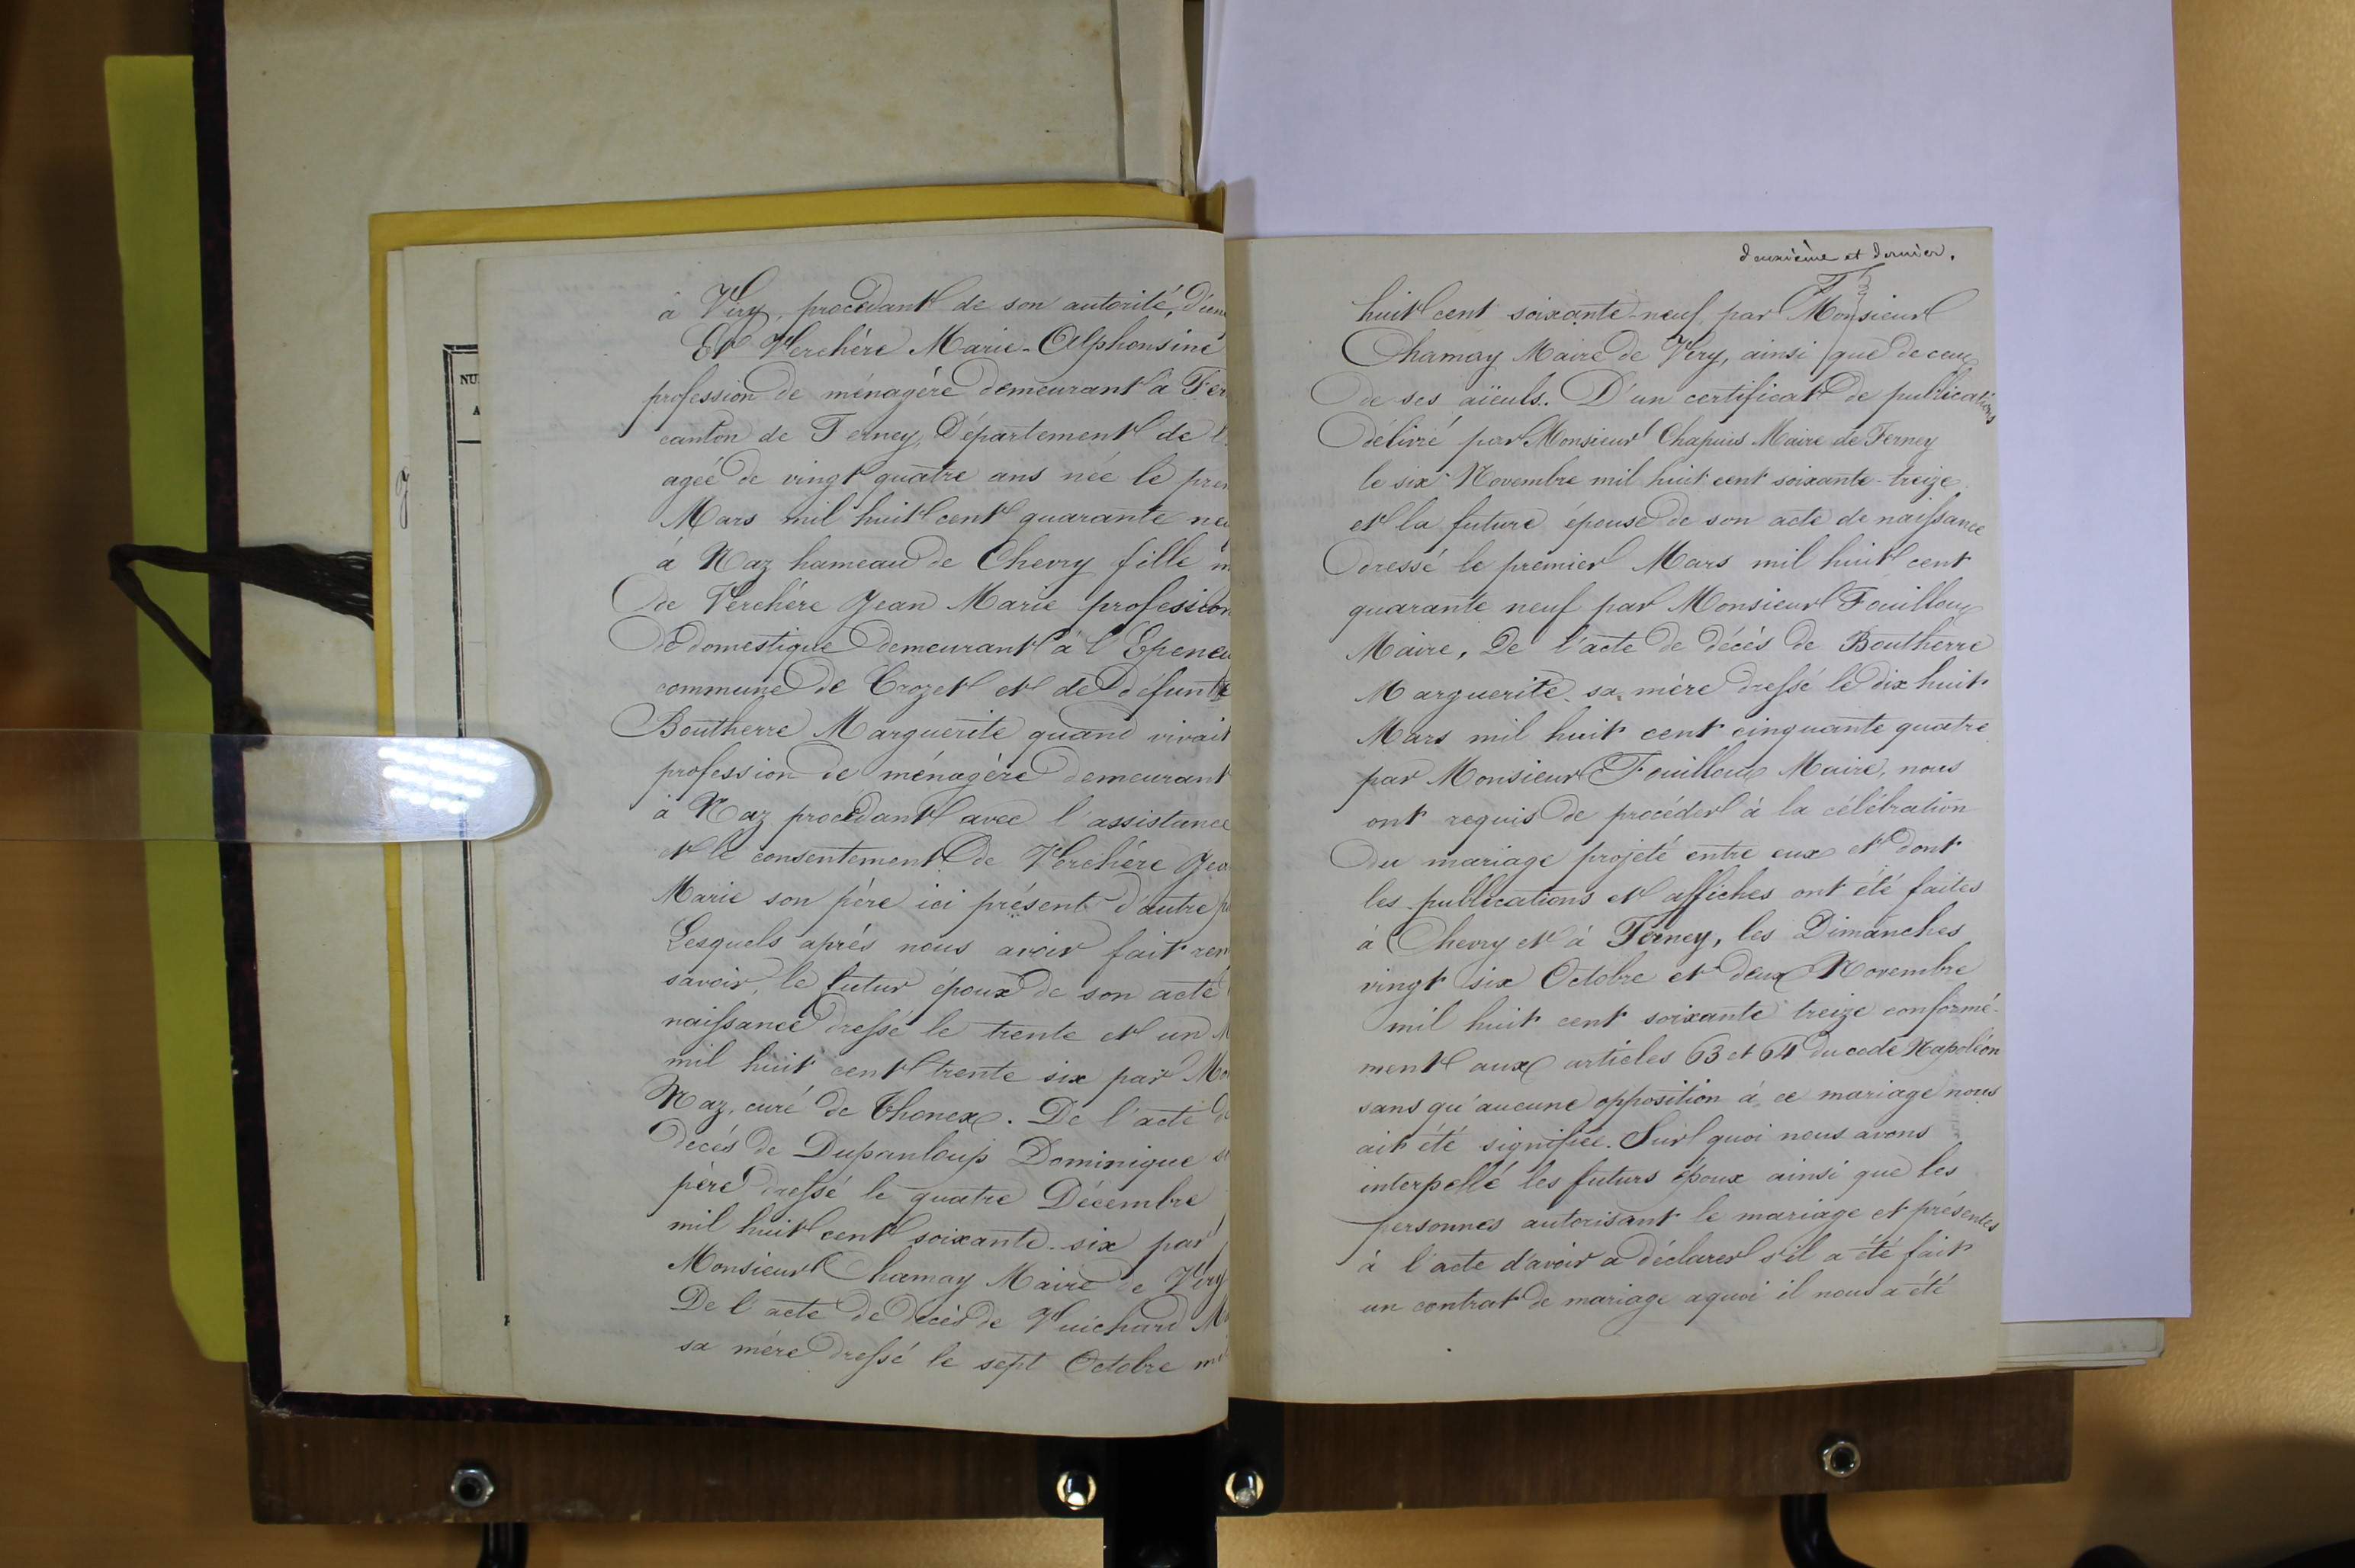 NU
A
à Véry, procédant de son autorité, d'une
Et Verchère Marie-Alphonsine
profession de ménagère demeurant à Fer
canton de Ferney, Département de l
agée de vingt quatre ans née le pre
Mars mil huit cent quarante neu
à Naz hameau de Chevry fille m
De Verchère Jean Marie profesion
De domestique demeurant à l'Epeneu
commune de Crozet et de défunte
Boutherre Marguerite quand vivait
profession de ménagère demeurant
à Naz procédant avec l'assistance
et le consentement De Verchère Jea
Marie son père ici présent d'autre p
Lesquels après nous avoir fait rem
savoir, le futur époux de son acte
naissance dressé le trente et un M
mil huit cent trente six par Mo
Naz, curé de Thonex. De l'acte de
décès de Dupanloup Dominique s
père dressé le quatre Décembre
mil huit cent soixante-six par
Monsieur Chamay Maire de Véry
De l'acte de décès de Vuichard M
sa mère dressé le sept Octobre mil
deuxième et dernier.
huit cent soixante-neuf, par Monsieur
Chamay Maire de Véry, ainsi que de ceux
de ses aïeuls. D'un certificat de publications
délivré par Monsieur Chapuis Maire de Ferney
le six Novembre mil huit cent soixante-treize
et la future épouse de son acte de naissance
dressé le premier Mars mil huit cent
quarante neuf par Monsieur Fouilloux
Maire, De l'acte de décès de Boutherre
Marguerite sa mère dressé le dix huit
Mars mil huit cent cinquante quatre
par Monsieur Fouilloux Maire, nous
ont requis de procéder à la célébration
Du mariage projeté entre eux et dont
les publications et affiches ont été faites
à Chevry et à Ferney, les Dimanches
vingt six Octobre et deux Novembre
mil huit cent soixante treize conformé-
ment aux articles 63 et 64 du code Napoléon
sans qu'aucune opposition à ce mariage nous
ait été signifiée. Sur quoi nous avons
interpellé les futurs époux ainsi que les
personnes autorisant le mariage et présentes
à l'acte d'avoir a déclarer s'il a été fait
un contrat de mariage aquoi il nous a été